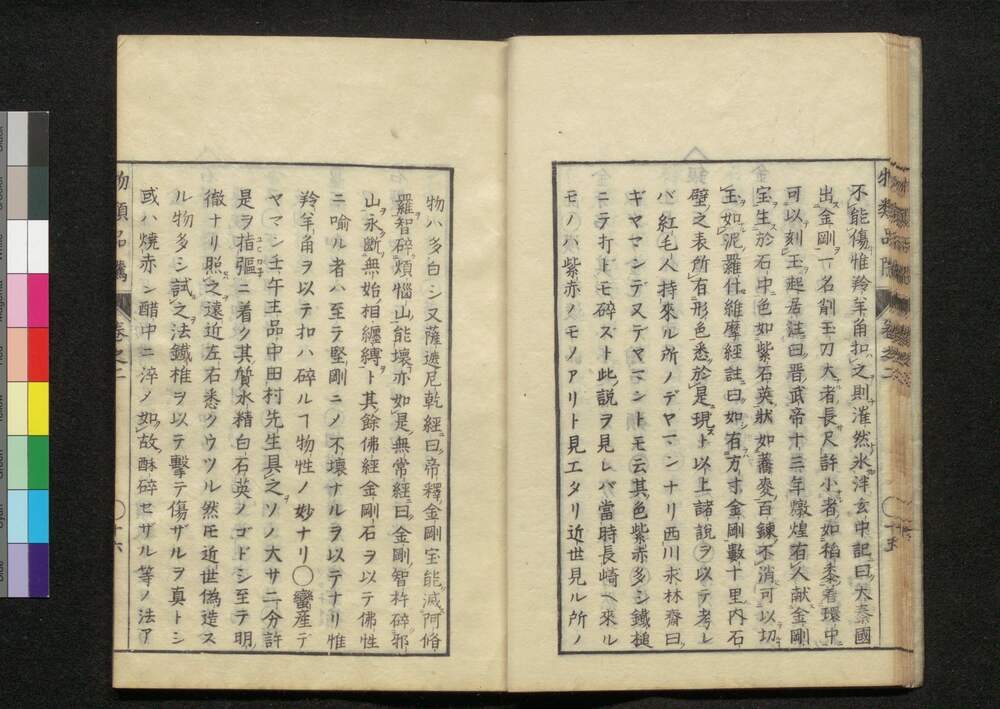 不能傷惟羚羊角扣之則漼然氷泮玄中記曰大秦國
出金剛一名削玉刀大者長尺許小者如稻黍着環中
可以刻玉起居注曰晋武帝十三年燉煌有人献金剛
宝生於石中色如紫石英狀如蕎麥百鍊不消可以切
玉如泥羅什維摩經註曰如有方寸金剛數十里内石
壁之表所有形色悉於是現ト以上諸説ヲ以テ考レ
バ紅毛人持來ル所ノデヤマンナリ西川求林齋曰
ギヤマンデ又デヤマントモ云其色紫赤多シ鐵槌
ニテ打トモ碎ズト此説ヲ見レバ當時長崎ヘ來ル
モノハ紫赤ノモノアリト見エタリ近世見ル所ノ
物類品隲 卷之二 〇十五
物ハ多白シ又薩遮尼乾經曰帝釋金剛宝能滅阿脩
羅智碎煩惱山能壞亦如是無常經曰金剛智杵碎邪
山永斷無始相纏縛ト其餘佛經金剛石ヲ以テ佛性
ニ喻ル者ハ至テ堅剛ニノ不壞ナルヲ以テナリ惟
羚羊角ヲ以テ扣ハ碎ルヿ物性ノ妙ナリ〇蠻産デ
ヤマン壬午主品中田村先生具之ソノ大サ二分許
是ヲ指彄ニ着ク其質水精白石英ノゴドシ至テ明
徹ナリ照之遠近左右悉クウツル然モ近世偽造ス
ル物多シ試之法鐵椎ヲ以テ擊テ傷ザルヲ真トシ
或ハ燒赤ノ醋中ニ淬メ如故酥碎セザル等ノ法ア
物類品隲 卷之二 〇十六